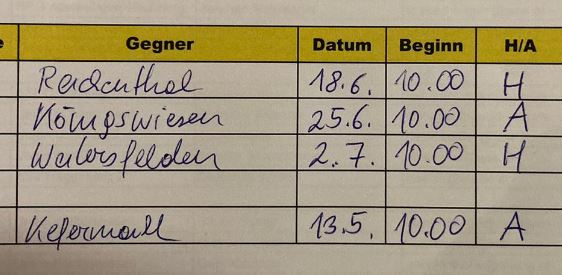 Gegner Datum Beginn H/A
Reichenthal 18.6. 10.00 H
Königswiesen 25.6. 10.00 A
Weitersfelden 2.7. 10.00 H
Kefermarkt 13.5. 10.00 A